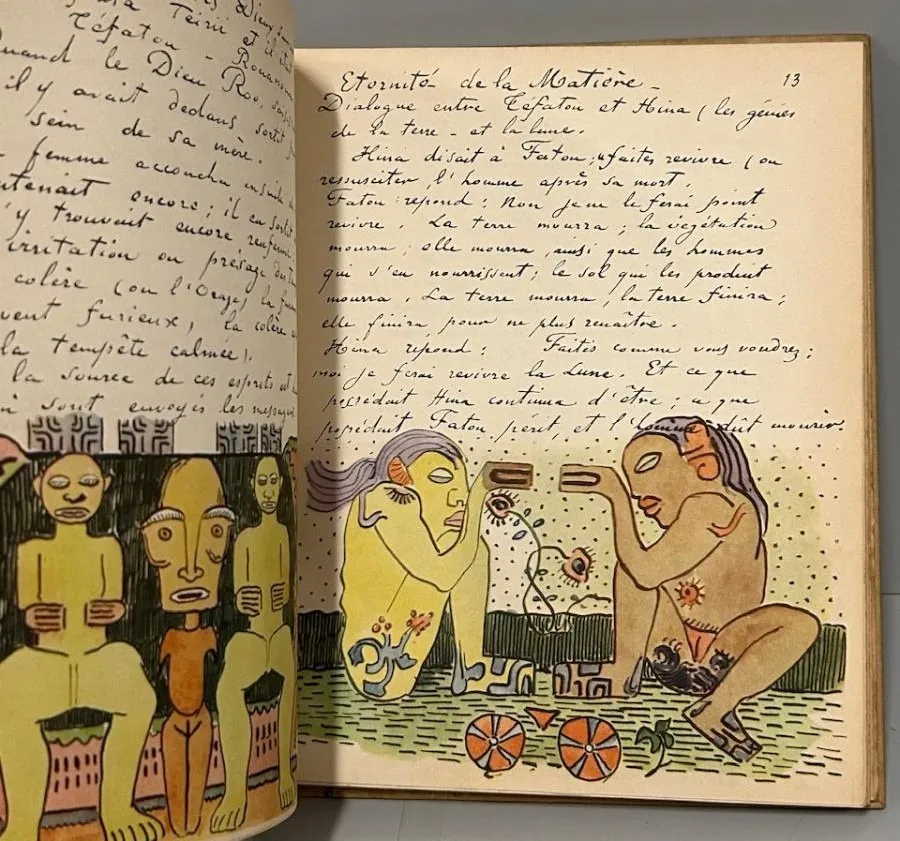 Dieu
Teirii et il
Téfatou - Rouanoua
Quand le Dieu Roo,
il y avait dedans sortit
sein de sa mère.
femme accoucha ensuite
ntenait encore ; il en sortit
'y trouvait encore renfermé
irritation ou presage
colère (ou l'Orage) la
vent furieux, la colère
la tempête calmée).
la source de ces esprits est
sont envoyés les
Eternité de la Matière - 13
Dialogue entre Tefatou et Hina (les génies
de la terre - et la lune.
Hina disait à Fatou ; " faites revivre (ou
ressusciter l'homme après sa mort.
Fatou répond : Non je ne le ferai point
revivre . La terre mourra ; la végétation
mourra ; elle mourra , ainsi que les hommes
qui s'en nourrissent ; le sol qui les produit
mourra . La terre mourra , la terre finira ;
elle finira pour ne plus renaître .
Hina répond : Faites comme vous voudrez ;
moi je ferai revivre la Lune . Et ce que
possédait Hina continua d'être ; ce que
possédait Fatou périt, et l'homme dût mourir.